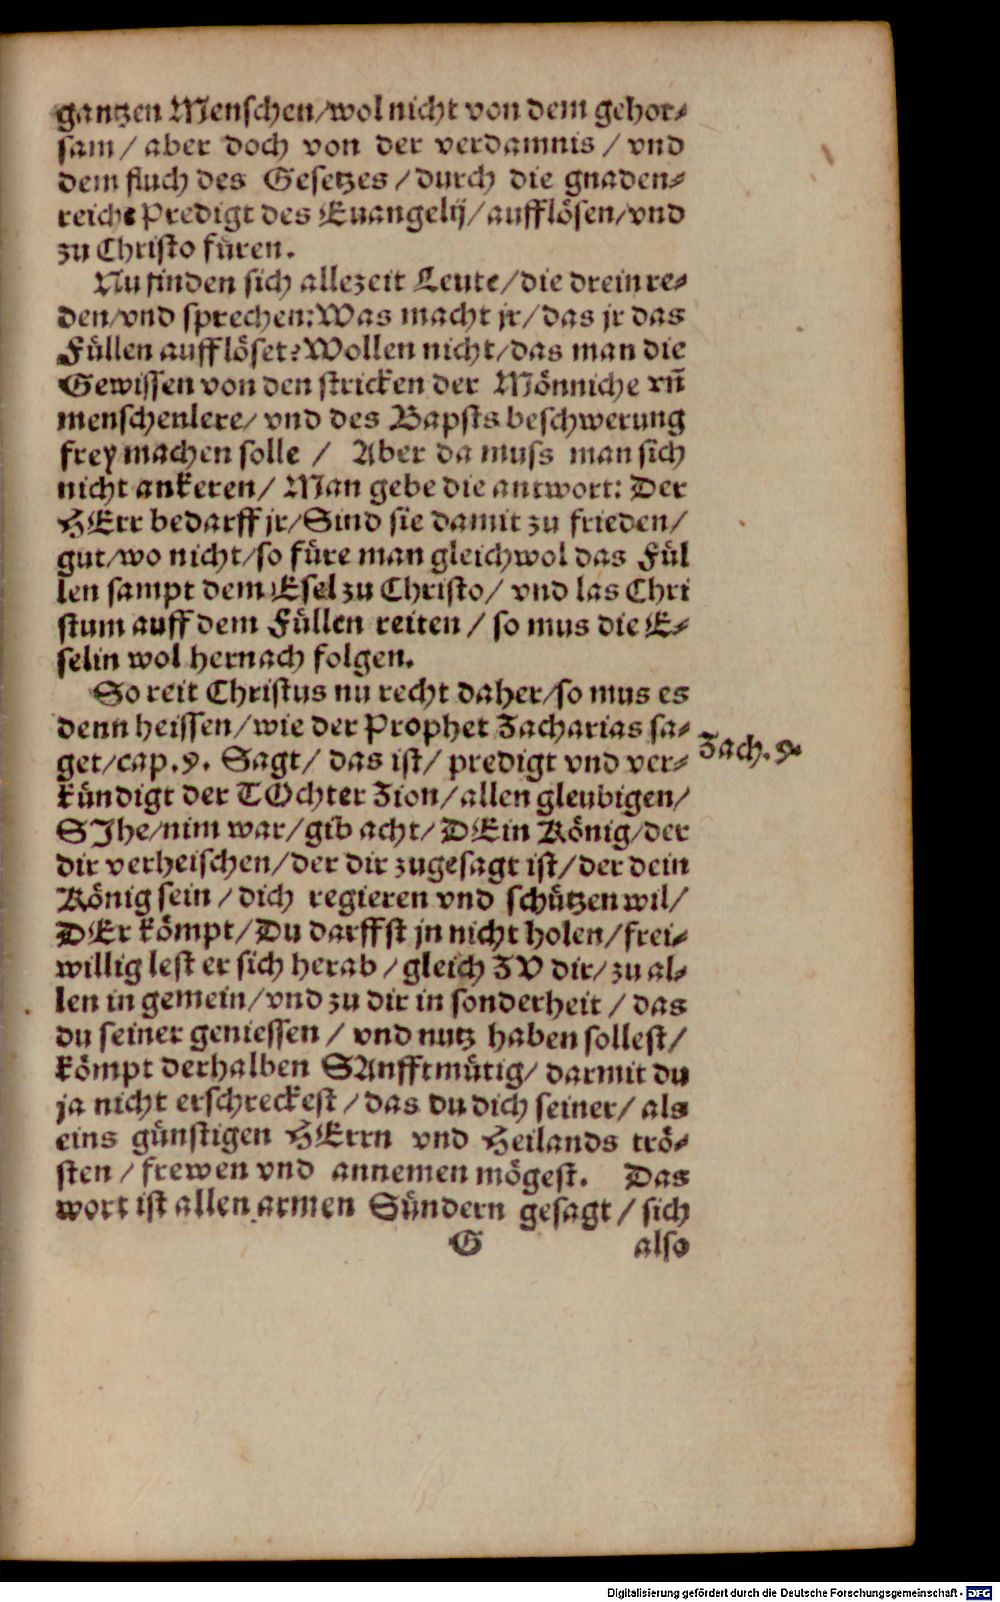 gantzen Menschen/wol nicht von dem gehor-
sam / aber doch von der verdamnis / vnd
dem fluch des Gesetzes / durch die gnaden-
reiche Predigt des Euangelij/aufflösen/vnd
zu Christo füren.
Nu finden sich allezeit Leute/die drein re-
den/vnd sprechen: Was macht jr/das jr das
Füllen aufflöset? Wollen nicht/das man die
Gewissen von den stricken der Mönniche vñ
menschenlere/ vnd des Bapsts beschwerung
frey machen solle / Aber da muss man sich
nicht ankeren/ Man gebe die antwort: Der
HErr bedarff jr/Sind sie damit zu frieden/
gut/wo nicht/so füre man gleichwol das Fül
len sampt dem Esel zu Christo/ vnd las Chri
stum auff dem Füllen reiten / so mus die E-
selin wol hernach folgen.
So reit Christus nu recht daher/so mus es
denn heissen/wie der Prophet Zacharias sa-
get/cap.9. Sagt/ das ist/ predigt vnd ver-
Zach. 9.
kündigt der TOchter Zion/allen gleubigen/
SIhe/nim war/gib acht/ DEin König/der
dir verheischen/der dir zugesagt ist/der dein
König sein / dich regieren vnd schützen wil/
DEr kömpt/Du darffst jn nicht holen/frei-
willig lest er sich herab / gleich ZV dir/ zu al-
len in gemein/vnd zu dir in sonderheit / das
du seiner geniessen / vnd nutz haben sollest/
kömpt derhalben SAnfftmütig/ darmit du
ja nicht erschreckest / das du dich seiner/ als
eins günstigen HErrn vnd Heilands trö-
sten / frewen vnd annemen mögest. Das
wort ist allen armen Sündern gesagt / sich
G also
Digitalisierung gefördert durch die Deutsche Forschungsgemeinschaft - DFG